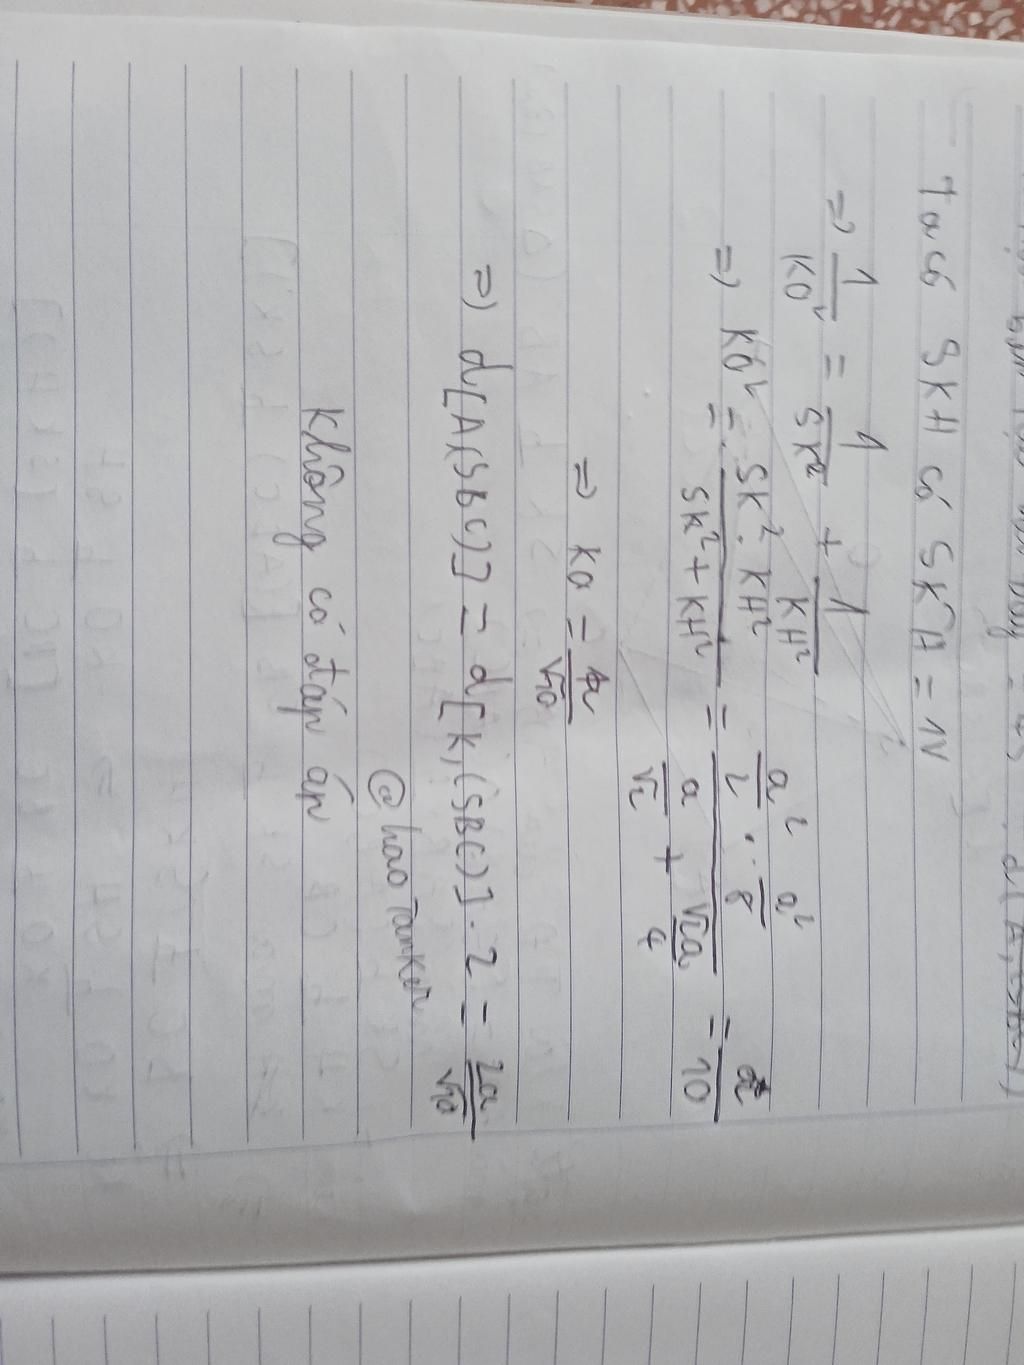 d(A,(SBC))
- Ta có SKH có SK^H = 1V
=> 1/KO² = 1/SK² + 1/KH²
=> KO² = SK² . KH² / SK² + KH² = a²/2 . a²/8 / a/√2 + √2a/4 = a²/10
=> KO = a/√10
=> d[A,(SBC)] = d[K,(SBC)] . 2 = 2a/√10
@haotanker
Không có đáp áp